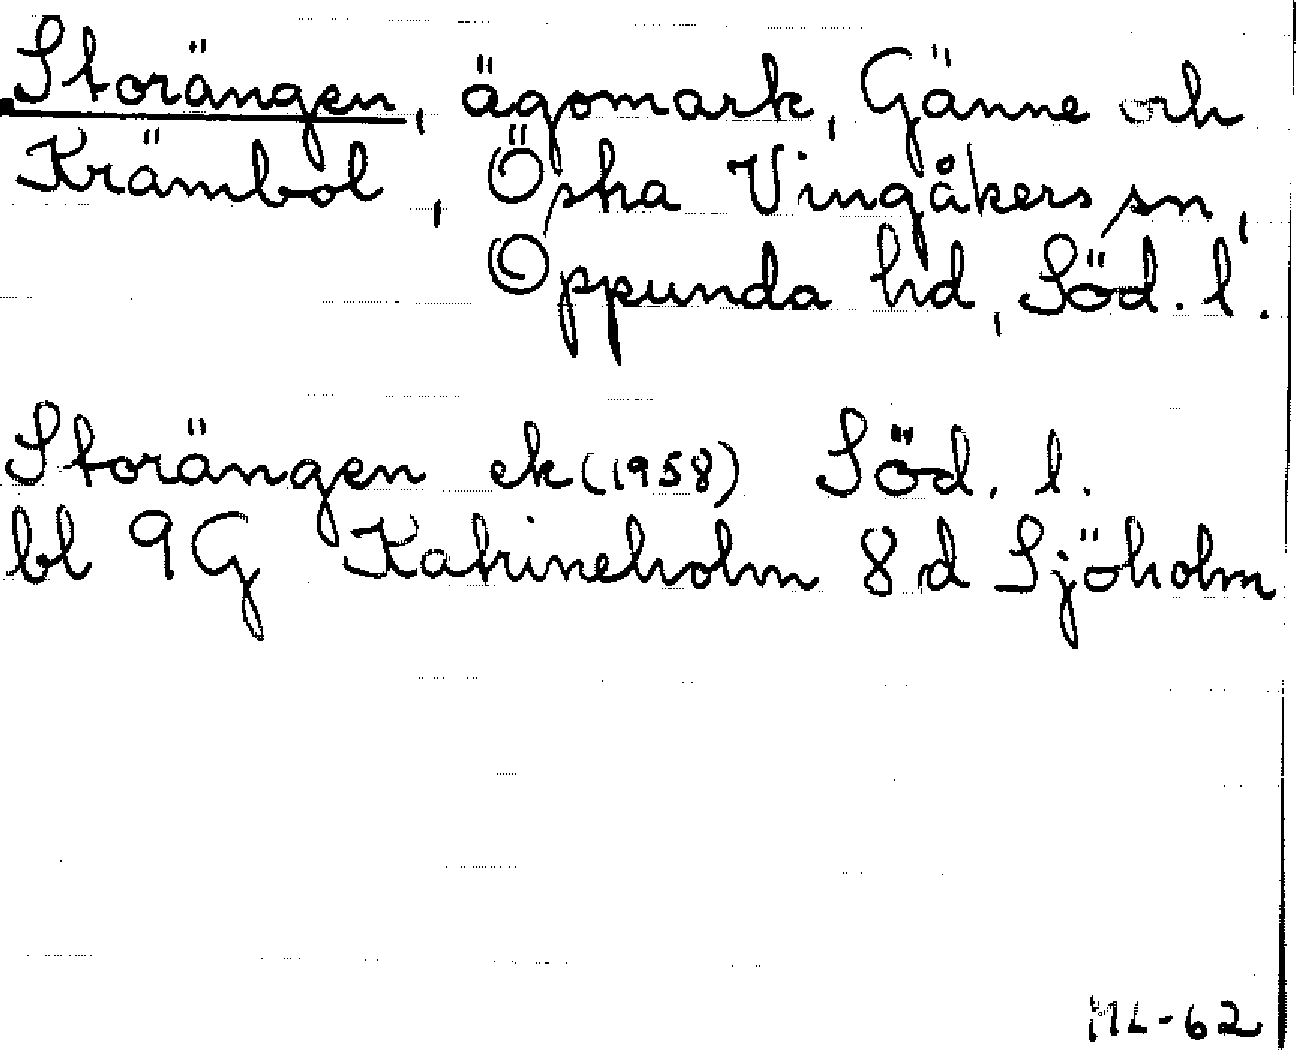 Storängen, ägomark, Gänne och
Krämbol, Östra Vingåkers sn,
Oppunda hd, Söd. l.
Storängen ek (1958) Söd. l.
bl 9G Katrineholm 8 d Sjöholm
ML-62